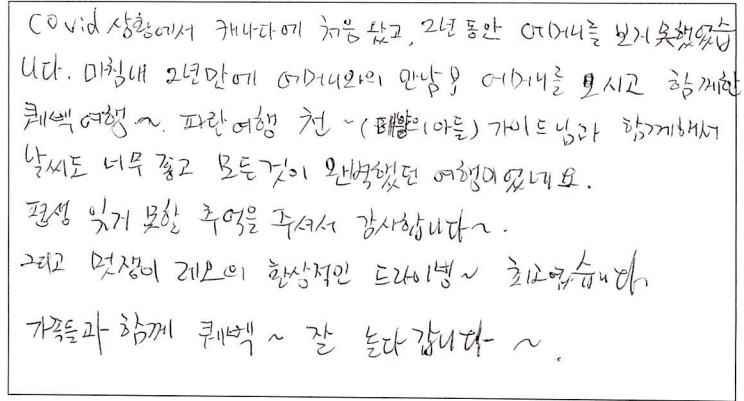 COVID 상황에서 캐나다에 처음 왔고, 2년 동안 어머니를 보지 못했었습
니다. 마침내 2년만에 어머니와의 만남 및 어머니를 모시고 함께한
퀘벡 여행~. 파란여행 천~(태양의 아들) 가이드님과 함께해서
날씨도 너무 좋고 모든것이 완벽했던 여행이었네요.
평생 잊지 못할 추억을 주셔서 감사합니다~.
그리고 멋쟁이 레오의 환상적인 드라이빙~ 최고였습니다.
가족들과 함께 퀘벡~ 잘 놀다 갑니다~.